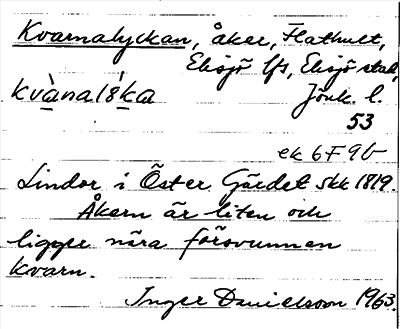 Kvarnalyckan, åker, Flathult,
Eksjö lfs, Eksjö stad,
kvàna lỳka Jönk. l.
53
ek 6F9b
Lindor i Öster Gärdet skk 1819.
Åkern är liten och
ligger nära försvunnen
kvarn.
Inger Danielsson 1963.